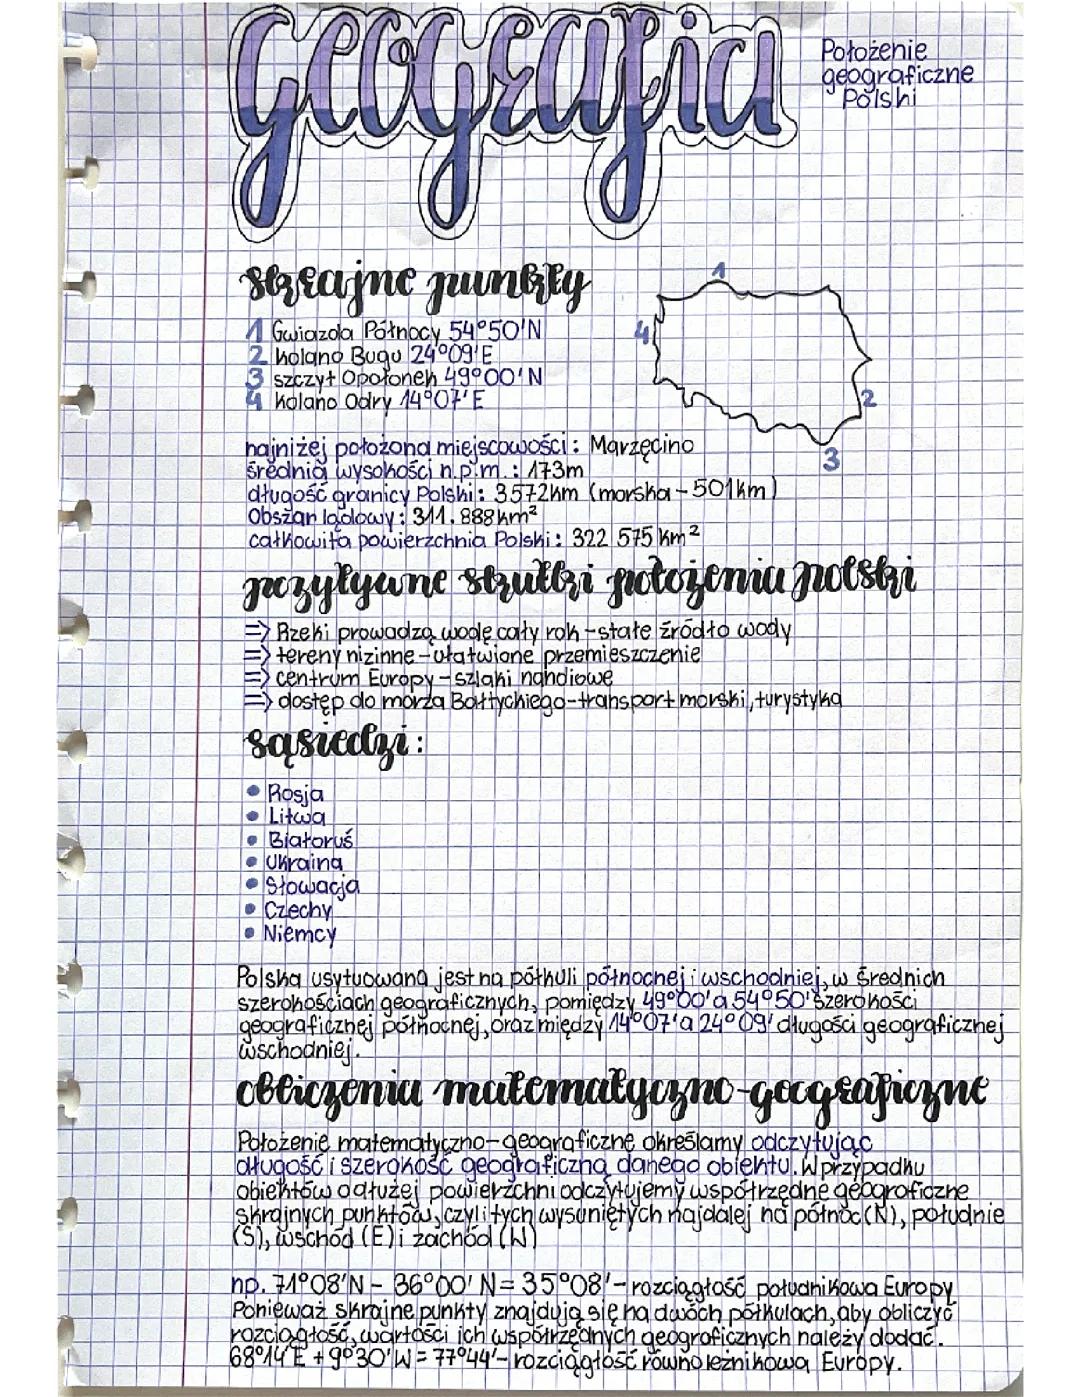 geografia
Położenie
geograficzne
Polski
skrajne punkty
1
1 Gwiazda Północy 54°50'N
4
2 kolano Bugu 24°09'E
3 szczyt Opołonek 49°00'N
4 kolano Odry 14°07'E
2
najniżej położona miejscowości: Marzęcino
3
średnia wysokości n.p.m.: 173m
długość granicy Polski: 3572km (morska - 501km)
Obszar lądowy: 311.888km²
całkowita powierzchnia Polski: 322 575 km²
pozytywne skutki położenia polski
=> Rzeki prowadzą wodę cały rok - stałe źródło wody
=> tereny nizinne - ułatwione przemieszczenie
=> centrum Europy - szlaki nandlowe
=> dostęp do morza Bałtyckiego - transport morski, turystyka
sąsiedzi:
• Rosja
• Litwa
• Białoruś
• Ukraina
• Słowacja
• Czechy
• Niemcy
Polska usytuowana jest na półkuli północnej i wschodniej, w średnich
szerokościach geograficznych, pomiędzy 49°00' a 54°50' szerokości
geograficznej północnej, oraz między 14°07' a 24°09' długości geograficznej
wschodniej.
obliczenia matematyczno-geograficzne
Położenie matematyczno-geograficzne określamy odczytując
długość i szerokość geograficzną danego obiektu. W przypadku
obiektów o dłużej powierzchni odczytujemy współrzędne geograficzne
skrajnych punktów, czyli tych wysuniętych najdalej na północ (N), południe
(S), wschód (E) i zachód (W)
np. 71°08'N - 36°00'N = 35°08' - rozciągłość południkowa Europy
Ponieważ skrajne punkty znajdują się na dwóch półkulach, aby obliczyć
rozciągłość, wartości ich współrzędnych geograficznych należy dodać.
68°14'E + 9°30'W = 77°44' - rozciągłość równoleżnikowa Europy.